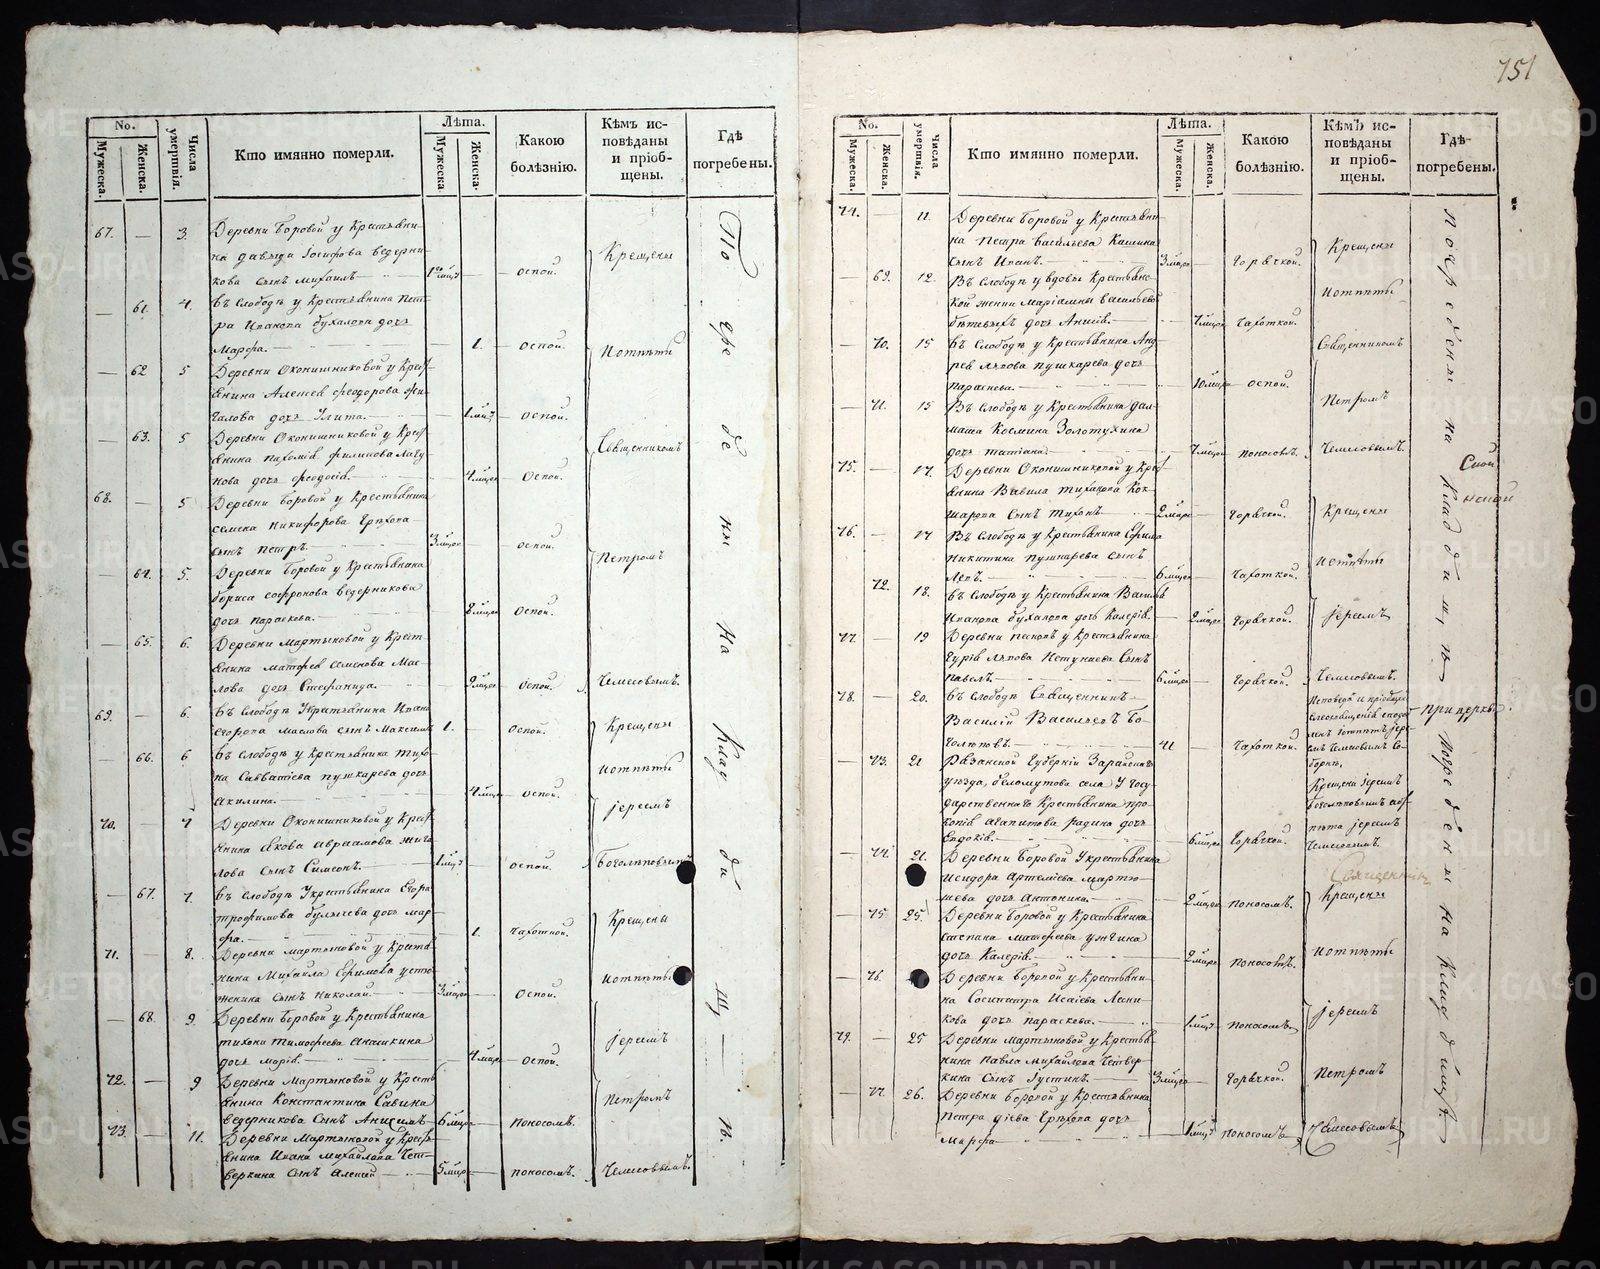 No.
Мужеска.
Женска.
Числа умертвія.
Кто имянно померли.
Лѣта.
Мужеска
Женска.
Какою болѣзнію.
Кѣмъ исповѣданы и пріобщены.
Гдѣ погребены.
67. — 3. Деревни Боровой у Крестьяни-
на Давыда Іосифова Ведерни-
кова сынъ Михаилъ — оспой. Крещены
— 61. 4. Въ Слободѣ у Крестьянина Пет-
ра Иванова Бухалова дочь
Марфа. — 1. — оспой. и отпѣты
— 62 5 Деревни Оконишниковой у Крест-
янина Алексея Феодорова Жи-
галова дочь Улита. — 1 мѣц. — оспой.
— 63. 5 Деревни Оконишниковой у Крест-
янина Пахомія Филипова Лагу-
нова дочь Феодосія. — 4 мѣцов — оспой. Священникомъ
68. — 5 Деревни Боровой у Крестьянина
Семена Никифорова Ерѣхова
сынъ Петръ. — 3 мѣцов — оспой. Петромъ
— 64. 5. Деревни Боровой у Крестьянина
Бориса Софронова Ведерникова
дочь Параскова. — 8 мѣцов — оспой.
— 65. 6. Деревни Мартыновой у Крест-
янина Матфея Семенова Мас-
лова дочь Стефанида. — 9 мѣцов — оспой. Чемесовымъ.
69. — 6. Въ Слободѣ у Крестьянина Ивана
Егорова Маслова сынъ Максимъ 1. — оспой. Крещены
— 66. 6 Въ Слободѣ у Крестьянина Тихо-
на Савватіева Пушкарева дочь
Акилина. — 4 мѣцов — оспой. и отпѣты
70. — 7 Деревни Оконишниковой у Крест-
янина Якова Авраамова Жига-
лова сынъ Симеонъ. — 1 мѣц. — оспой. іереемъ Боголѣповымъ
— 67. 7. Въ Слободѣ у Крестьянина Егора
Трофимова Булычева дочь Мар-
фа. — 1. — чахоткой. Крещены
71. — 8. Деревни Мартыновой у Крестья-
нина Михаила Ефимова Устю-
женина сынъ Николай — 3 мѣцов — оспой. и отпѣты
— 68. 9. Деревни Боровой у Крестьянина
Тихона Тимофеева Анашкина
дочь Марія. — 4 мѣцов — оспой. іереемъ
72. — 9 Деревни Мартыновой у Крест-
янина Константина Савина
Ведерникова сынъ Анисимъ — 6 мѣцов — поносомъ. Петромъ
73. — 11. Деревни Мартыновой у Крест-
янина Ивана Михайлова Чет-
веркина сынъ Алексей — 5 мѣцов — поносомъ. Чемесовымъ.
Погребены на Кладдищѣ.
151
No.
Мужеска.
Женска.
Числа умертвія.
Кто имянно померли.
Лѣта.
Мужеска.
Женска.
Какою болѣзнію.
Кѣмъ исповѣданы и пріобщены.
Гдѣ погребены.
74. — 11. Деревни Боровой у Крестьяни-
на Петра Васильева Кашина
сынъ Иванъ. — 3 мѣцов — горячкой. Крещены
— 69. 12. Въ Слободѣ у вдовы Крестьянс-
кой женки Маріамны Васильевой
дочь Анисія. — 7 мѣцов — чахоткой. и отпѣты
— 70. 15 Въ Слободѣ у Крестьянина Анд-
рея Лвова Пушкарева дочь
Параскева. — 10 мѣцов — оспой. Священникомъ
— 71. 15 Въ Слободѣ у Крестьянина Дал-
мата Космина Золотухина
дочь Татіана. — 7 мѣцов — поносомъ. Петромъ Чемесовымъ.
75. — 17. Деревни Оконишниковой у Крест-
янина Вавила Тиханова Кок-
шарова сынъ Тихонъ — 2 мѣцов — горячкой. Крещены
76. — 17 Въ Слободѣ у Крестьянина Ефима
Никитина Пушкарева сынъ
Левъ. — 6 мѣцов — чахоткой. и отпѣты
— 72. 18. Въ Слободѣ у Крестьянина Василья
Иванова Бухалова дочь Калерія. — 2 мѣцов — горячкой. іереемъ
77. — 19 Деревни Песковъ у Крестьянина
Гурія Лвова сынъ
Павелъ — 6 мѣцов — горячкой. Чемесовымъ.
78. — 20. Въ Слободѣ Священникъ
Василій Васильевъ Бо-
голѣповъ. — 41 — чахоткой.
при церкви
— 73. 21 Рязанской Губерніи Зарайскаго
уѣзда, Беломутова села у Госу-
дарственнаго Крестьянина Про-
копія Агапитова Радина дочь
Евдокія. — 6 мѣцов — горячкой. Крещена іереемъ
Боголѣповымъ
іереемъ
Чемесовымъ.
— 74. 21. Деревни Боровой у Крестьянина
Исидора Артеміева Мартю-
шева дочь Антонина. — 2 мѣцов — поносомъ. Крещены
Священник
— 75. 25. Деревни Боровой у Крестьянина
Степана Матфеева Ужгина
дочь Калерія. — 2 мѣцов — поносомъ. и отпѣты
— 76. Деревни Боровой у Крестьяни-
на Сосипатра Исаіева Лесни-
кова дочь Параскева. — 1 мѣц. — поносомъ. іереемъ
79. — 25 Деревни Мартыновой у Крестья-
нина Павла Михайлова Четвер-
кина сынъ Іустинъ. — 3 мѣцов — горячкой. Петромъ
— 77. 26. Деревни Боровой у Крестьянина
Петра Діева Ерѣхова дочь
Марфа — 1 мѣц. — поносомъ. Чемесовымъ
погребены на Кладдищѣ
погребены на Кладдищѣ